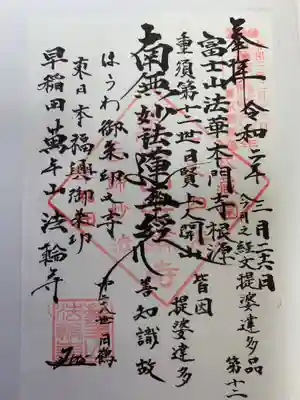 奉拝 令和二年三月二十六日
今月之経文 提婆達多品 第十二
富士山法華本門寺根源
重須第十二世日賢上人開山
皆因提婆達多
善知識故
南無妙法蓮華経
ほうわ御朱印文寺
東日本福興御朱印
第三十八世日鶴
早稲田 萬年山 法輪寺